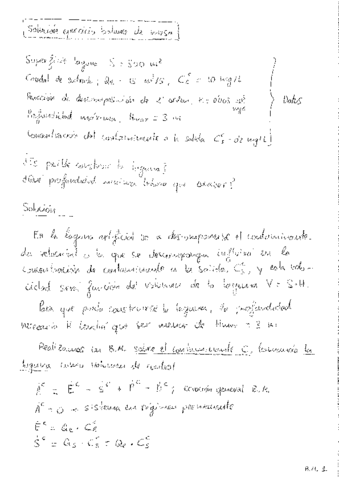 Solución ejercicio balance de masa
Superficie laguna S = 300 m²
Caudal de entrada, Qe = 15 m³/s, C =   mg/L
Reacción de descomposición de 2º orden, K =
Datos
Profundidad máxima, Hmax = 3 m
Concentración del contaminante a la salida Cs =   mg/L
¿Es posible construir la laguna?
¿Qué profundidad mínima habría que excavar?
Solución
En la laguna artificial se va a descomponer el contaminante.
La velocidad a la que se descomponga influirá en la
concentración de contaminante en la salida, Cs, y esta velo-
cidad será función del volumen de la laguna V = S·H.
Para que pueda construirse la laguna, la profundidad
necesaria H tendrá que ser menor de Hmax = 3 m
Realizamos un B.M. sobre el contaminante C, tomando la
laguna como volumen de control
Ȧᶜ = Ėᶜ - Ṡᶜ + Ṗᶜ - Ḋᶜ; ecuación general B.M.
Ȧᶜ = 0 → sistema en régimen permanente
Ėᶜ = Qe · Cᶜe
Ṡᶜ = Qs · Cᶜs = Qe · Cᶜs
B.M. 1